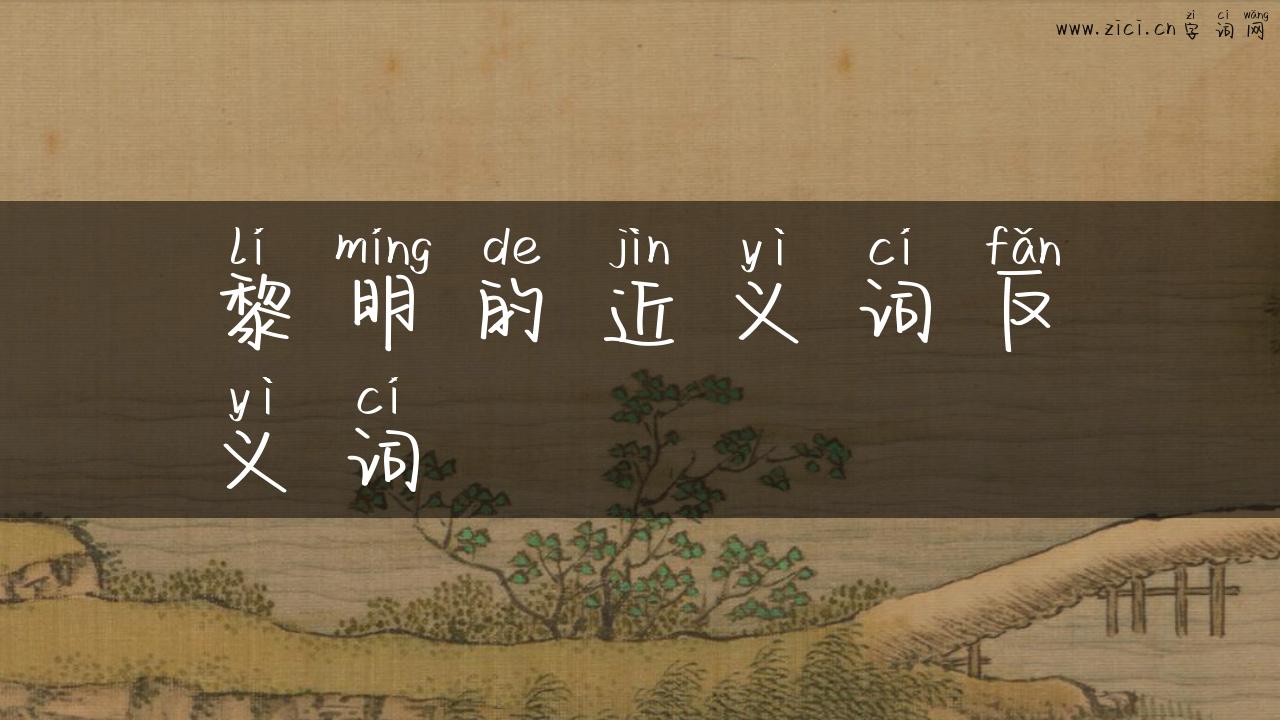 zì cí wǎng
www.zici.cn 字 词 网
lí míng de jìn yì cí fǎn
黎 明 的 近 义 词 反
yì cí
义 词